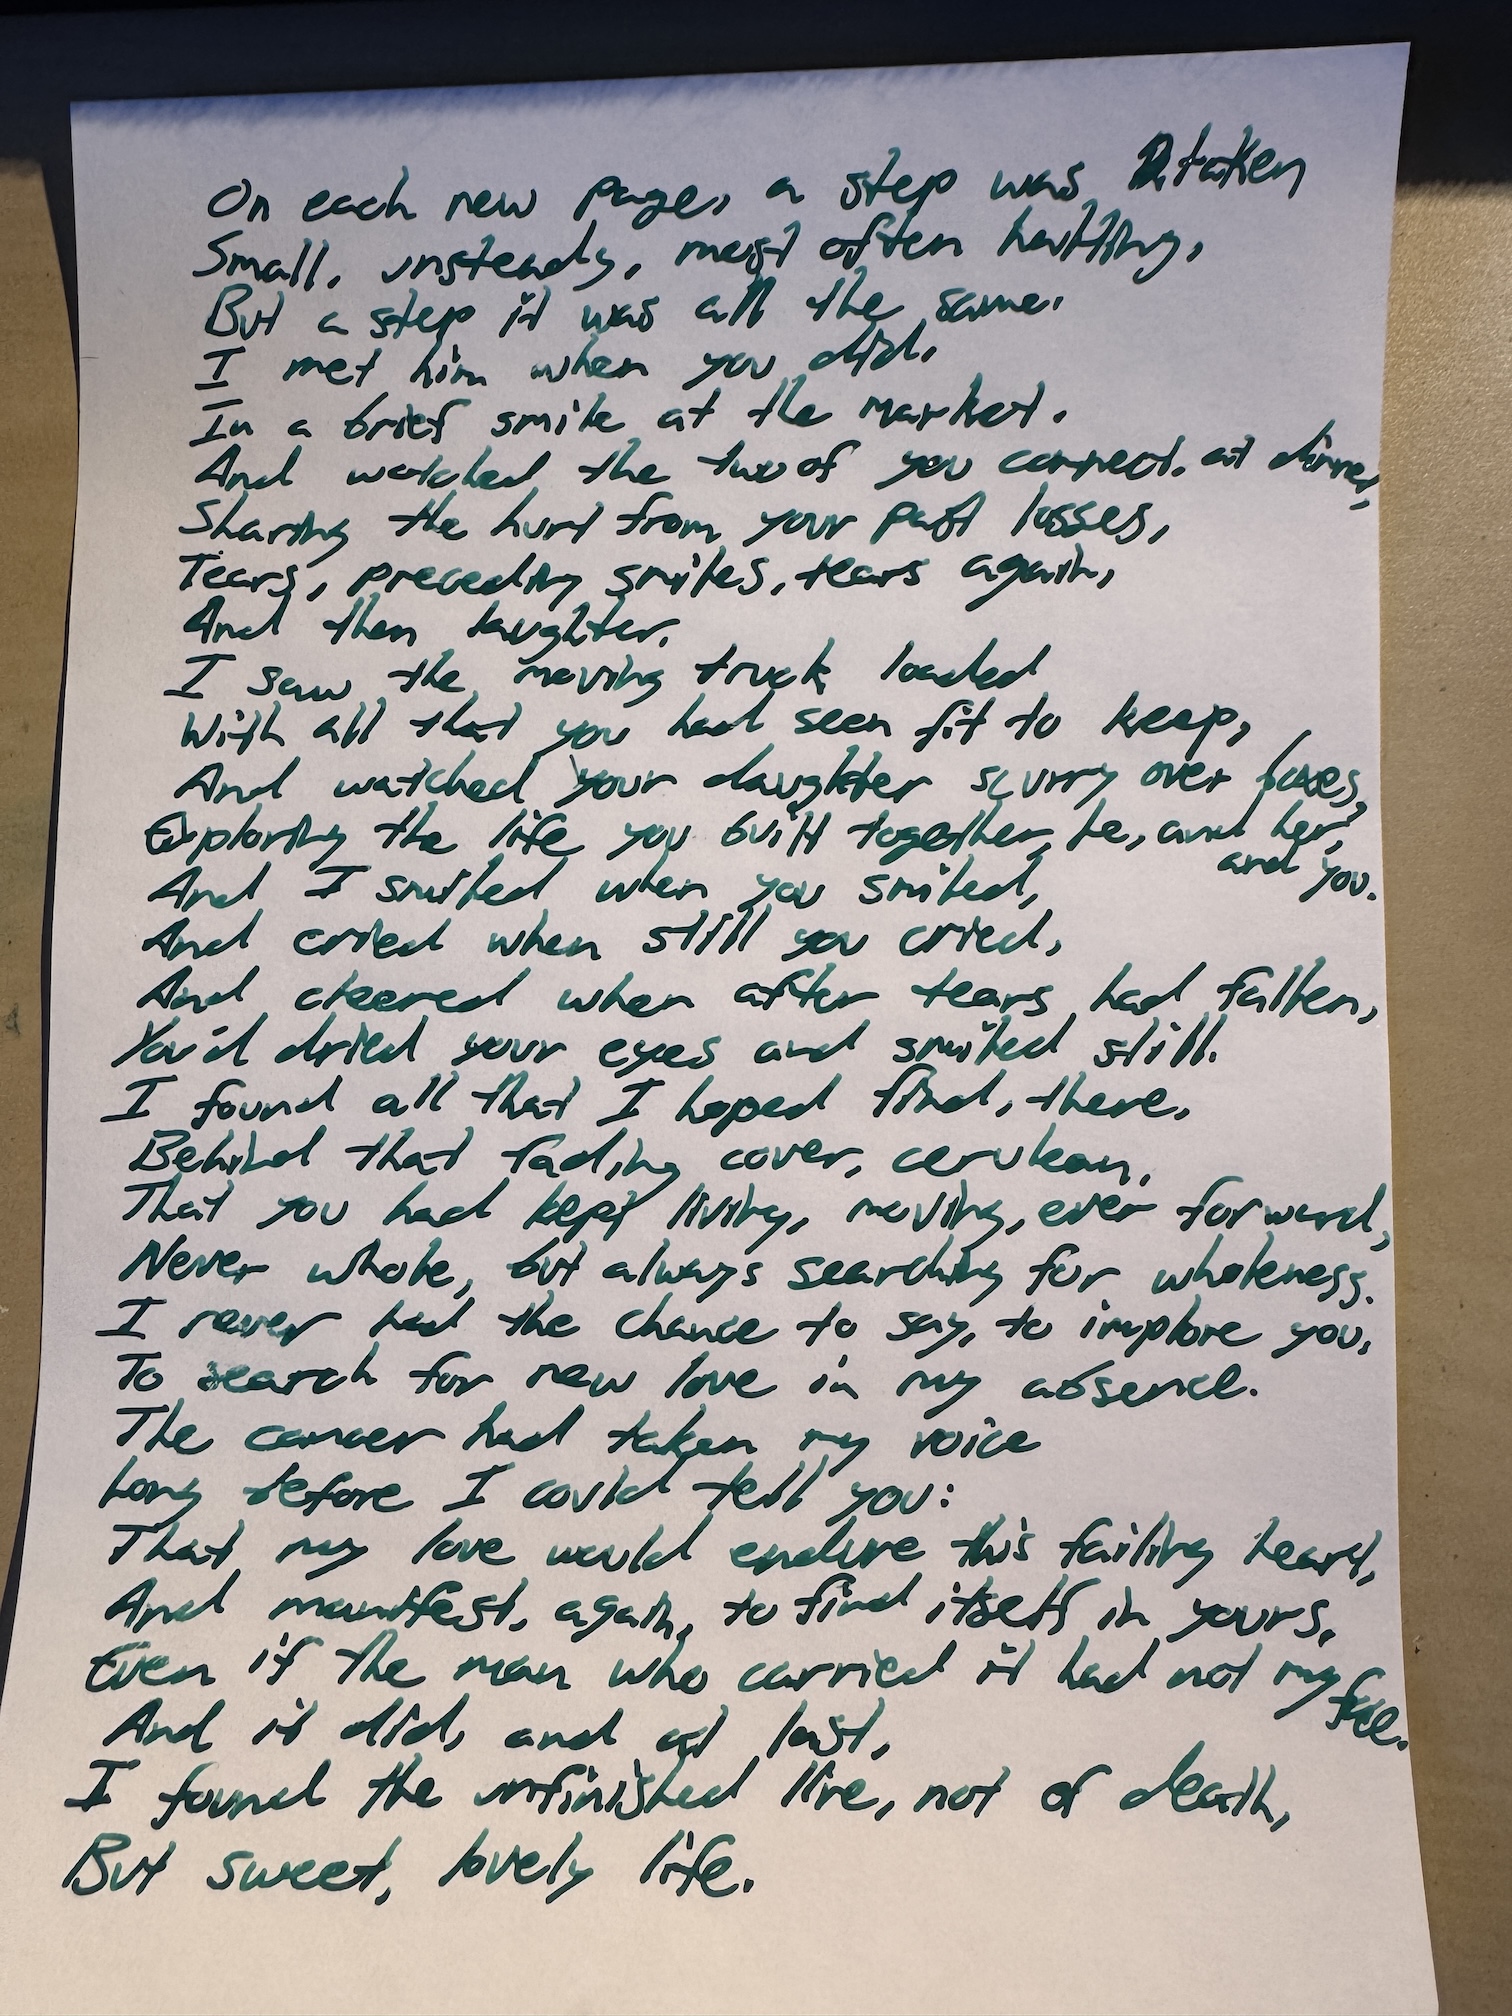 On each new page, a step was taken
Small, unsteady, most often haltting,
But a step it was all the same.
I met him when you did,
In a brief smile at the market.
And watched the two of you connect. at dinner,
Sharing the hurt from your past losses,
Tears, preceding smiles, tears again,
And then laughter.
I saw the moving truck loaded
With all that you had seen fit to keep,
And watched your daughter scurry over boxes,
Exploring the life you built together, he, and her,
and you.
And I smiled when you smiled,
And cried when still you cried,
And cheered when after tears had fallen,
You'd dried your eyes and smiled still.
I found all that I hoped find, there,
Behind that fading cover, cerulean,
That you had kept living, moving, ever forward,
Never whole, but always searching for wholeness.
I never had the chance to say, to implore you,
To search for new love in my absence.
The cancer had taken my voice
Long before I could tell you:
That my love would endure this failing heart,
And manifest, again, to find itself in yours,
Even if the man who carried it had not my
face.
And it did, and at last,
I found the unfinished line, not of death,
But sweet, lovely life.